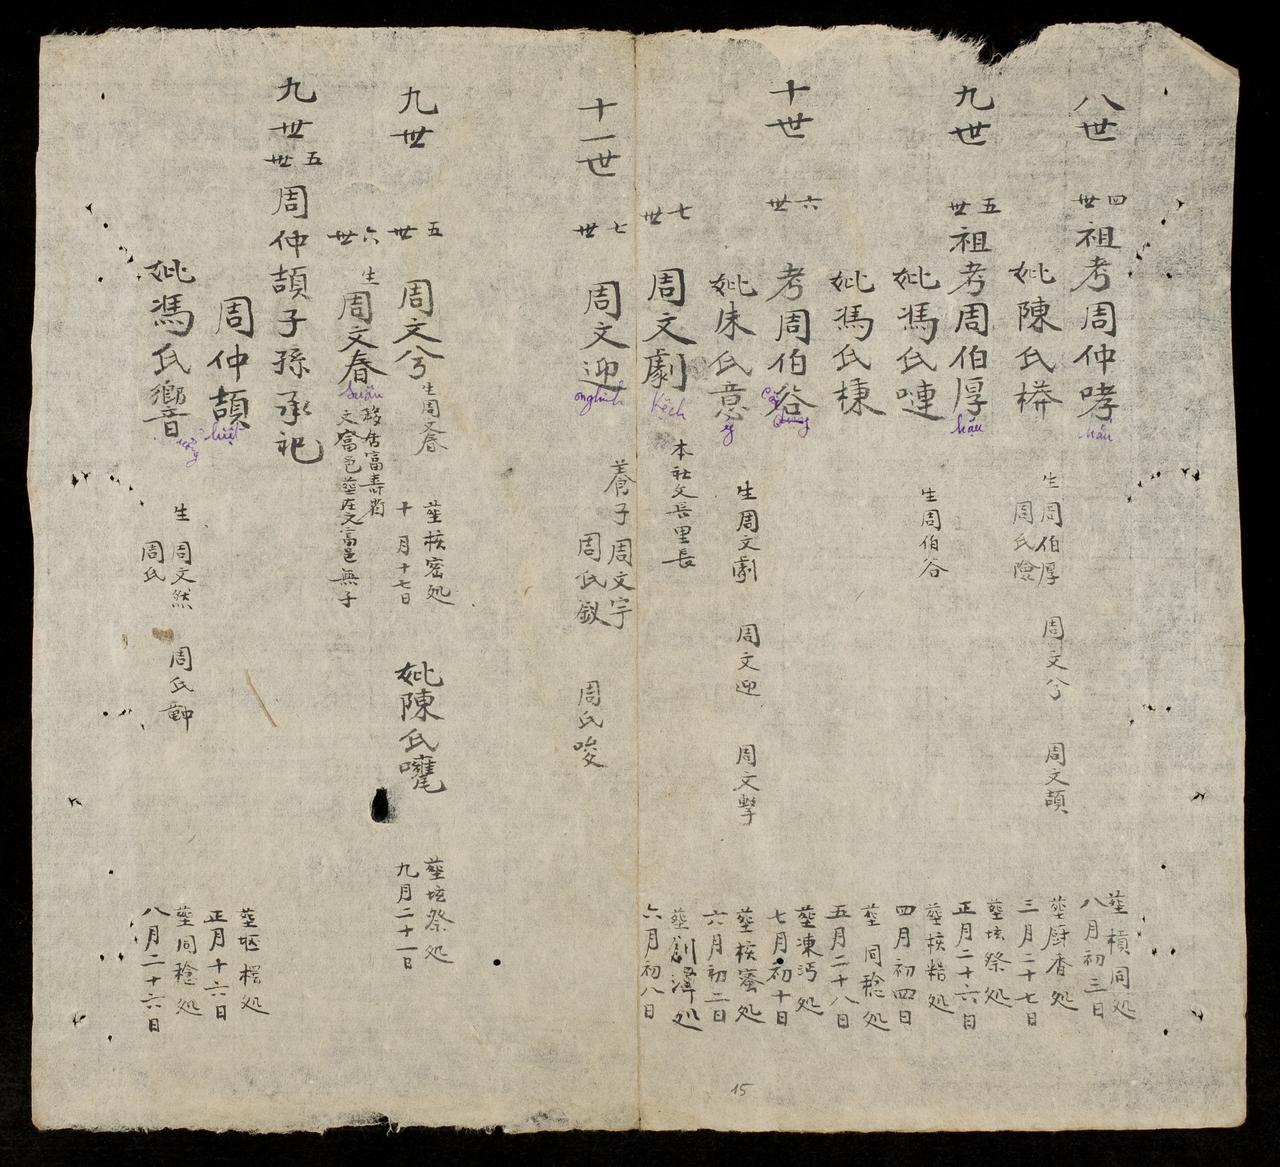 八世
四世
祖考周仲哮
hấu
葬槓同処
八月初三日
妣陳氏橩
生周伯厚 周文兮 周文頡
周氏險
葬厨香処
三月二十七日
九世
五世
祖考周伯厚
hậu
生周伯谷
葬坛祭処
正月二十六日
妣馮氏嗹
葬核榙処
四月初四日
妣馮氏棟
葬同稔処
五月二十八日
十世
六世
考周伯谷
葬凍沔処
七月初十日
妣朱氏意
ý
生周文劇 周文迎 周文擊
葬核蜜処
六月初二日
七世
周文劇
Kếch
本社文長里長
葬創潭処
六月初八日
十一世
七世
周文迎
nghinh
養子周文宇
周氏釵 周氏唆
九世
五世
周文兮
生周文春
葬核密処
十月十七日
妣陳氏𡅏
葬坛祭処
九月二十一日
六世
生
周文春
Xuân
移居富壽省
文富邑葬在文富邑無子
九世
五世
周仲頡子孫承祀
周仲頡
hiệt
正月十六日
妣馮氏響
生周文然 周氏
周氏
葬同稔処
八月二十六日
15